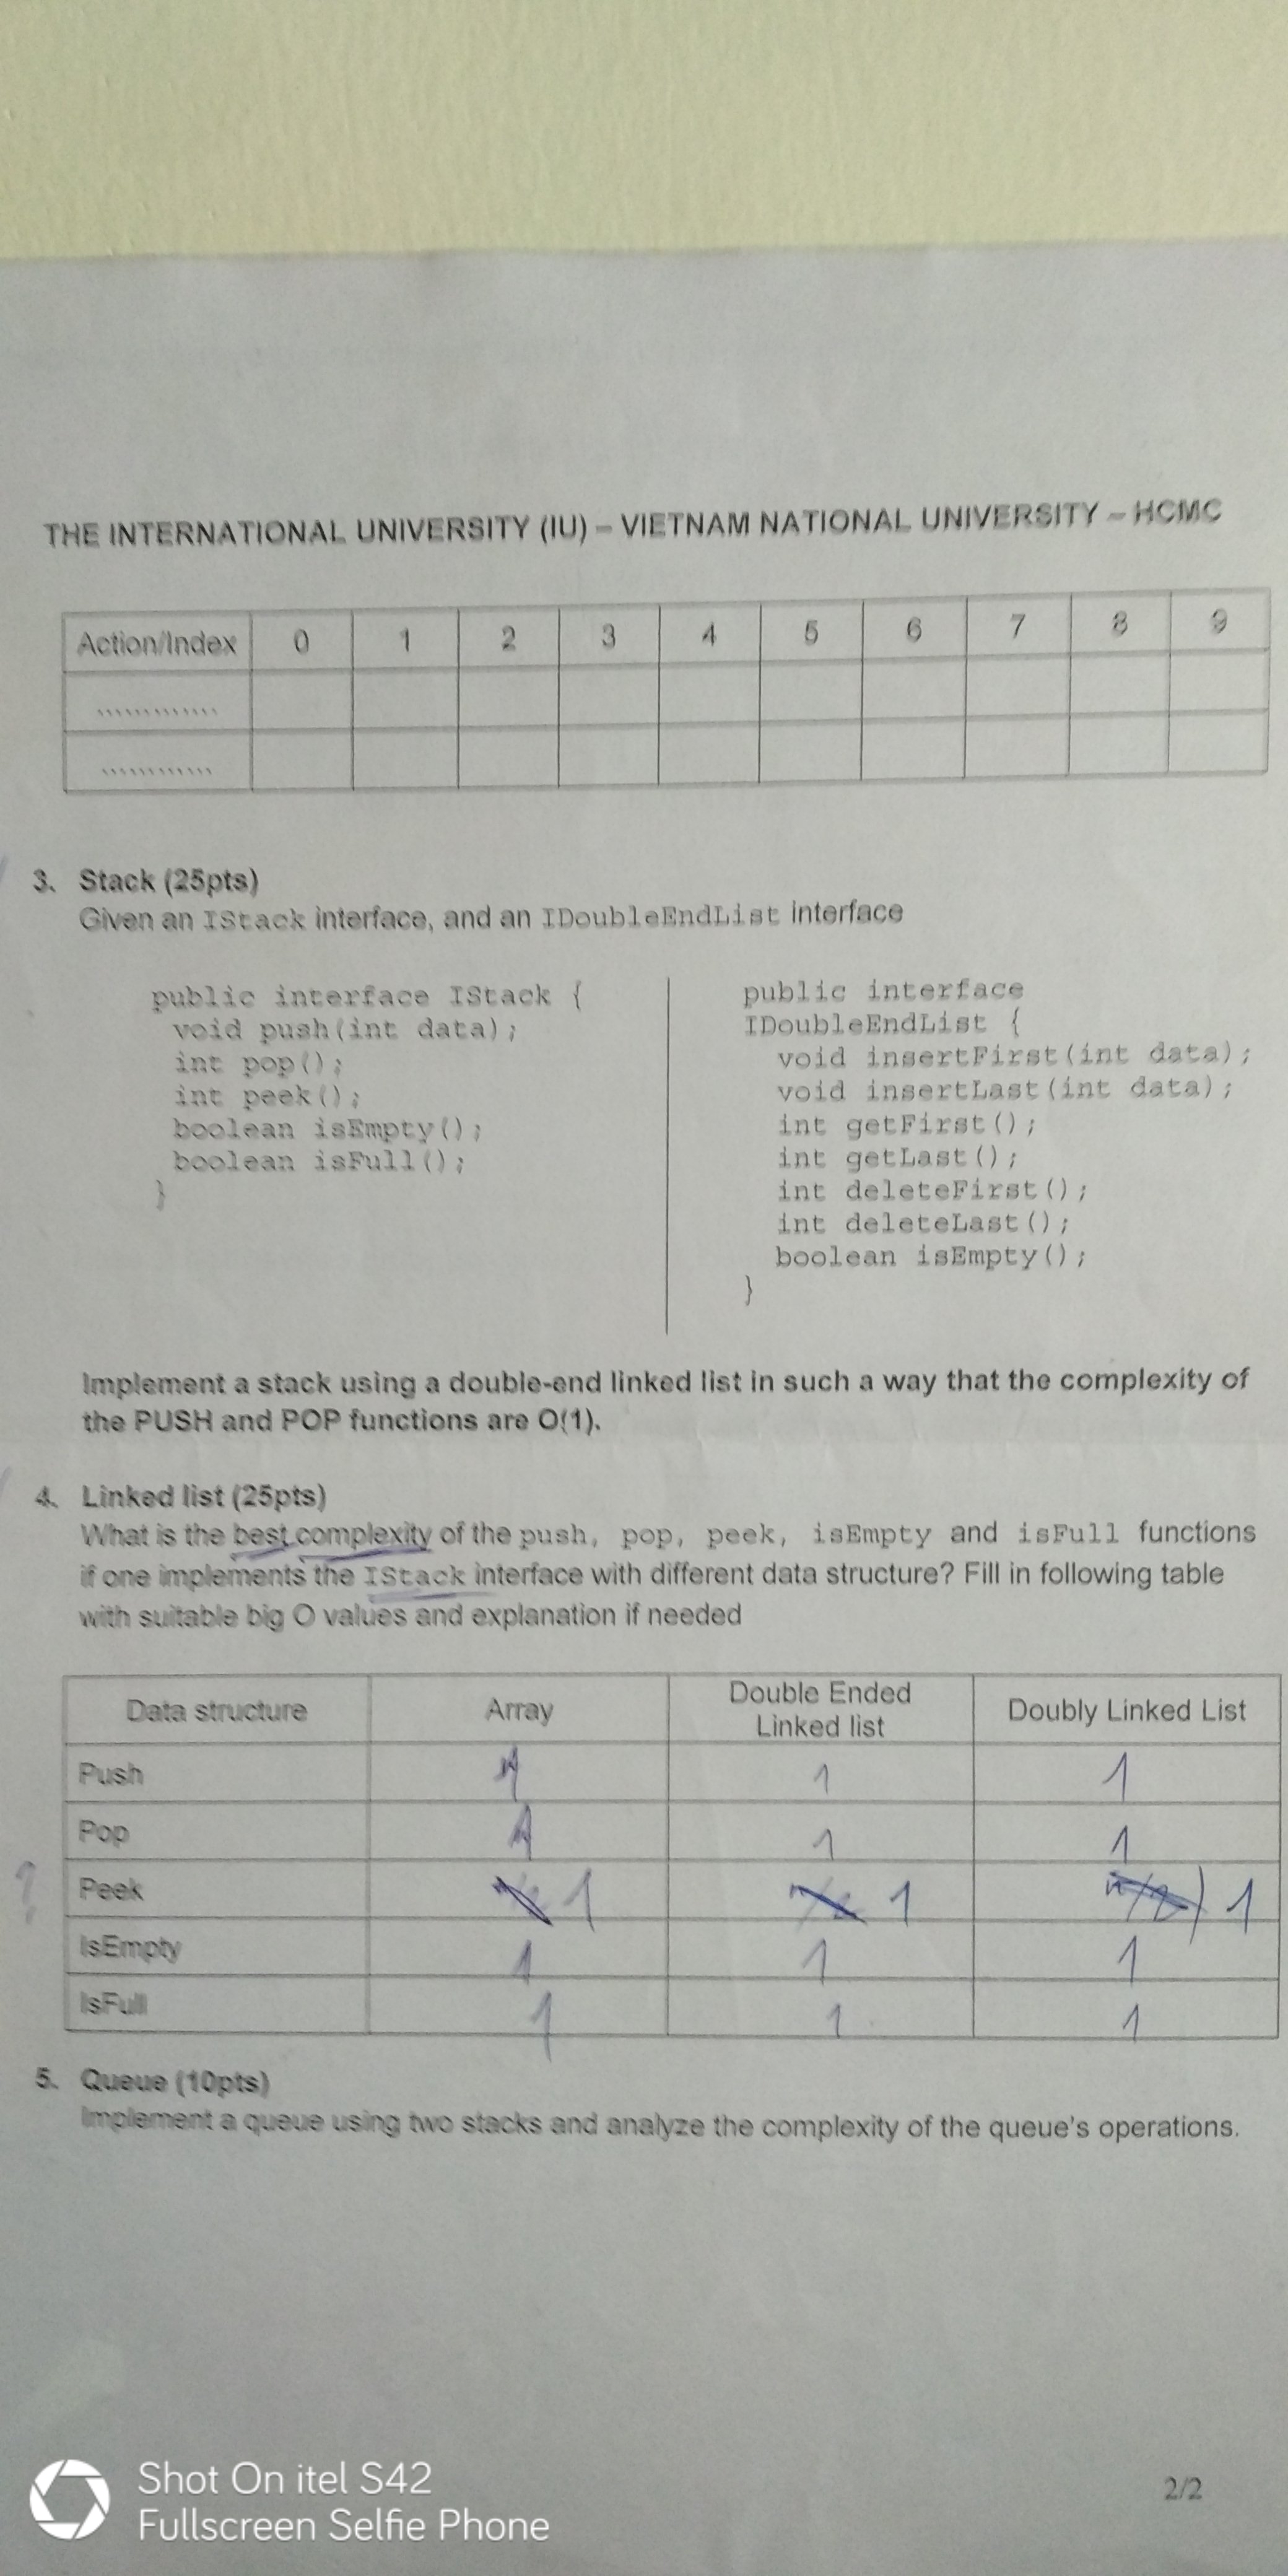 THE INTERNATIONAL UNIVERSITY (IU) – VIETNAM NATIONAL UNIVERSITY – HCMC
Action/Index 0 1 2 3 4 5 6 7 8 9
.............
............
3. Stack (25pts)
Given an IStack interface, and an IDoubleEndList interface
public interface IStack {
void push(int data);
int pop();
int peek();
boolean isEmpty();
boolean isFull();
}
public interface
IDoubleEndList {
void insertFirst(int data);
void insertLast(int data);
int getFirst();
int getLast();
int deleteFirst();
int deleteLast();
boolean isEmpty();
}
Implement a stack using a double-end linked list in such a way that the complexity of
the PUSH and POP functions are O(1).
4. Linked list (25pts)
What is the best complexity of the push, pop, peek, isEmpty and isFull functions
if one implements the IStack interface with different data structure? Fill in following table
with suitable big O values and explanation if needed
Data structure Array Double Ended Linked list Doubly Linked List
Push 1 1
Pop 1 1
? Peek 1 1 1
IsEmpty 1 1 1
IsFull 1 1 1
5. Queue (10pts)
Implement a queue using two stacks and analyze the complexity of the queue's operations.
2/2
Shot On itel S42
Fullscreen Selfie Phone